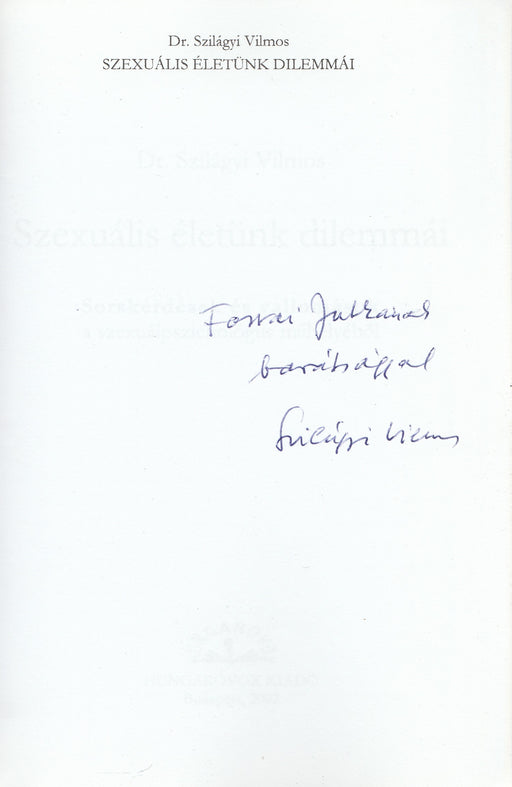 Dr. Szilágyi Vilmos
SZEXUÁLIS ÉLETÜNK DILEMMÁI
Dr. Szilágyi Vilmos
Szexuális életünk dilemmái
Sorskérdések és
a szexuálpszichológus
Jutkának
barátsággal
Szilágyi Vilmos
HUNGAROVOX KIADÓ
Budapest,